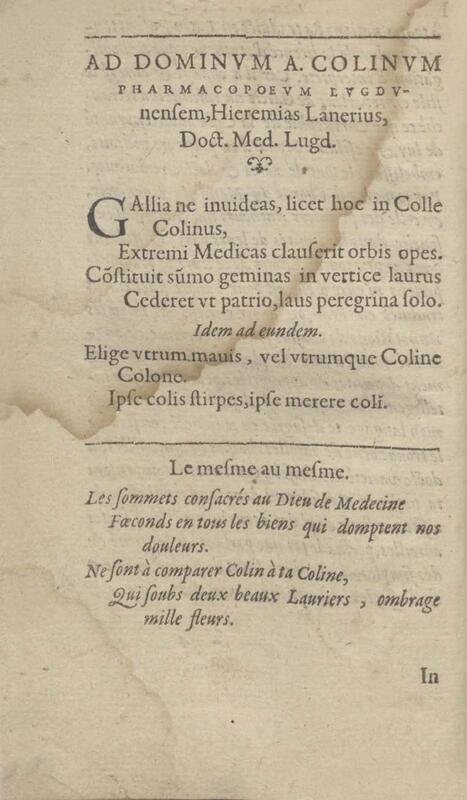 AD DOMINVM A. COLINVM
PHARMACOPOEVM LVGDV-
nensem, Hieremias Lanerius,
Doct. Med. Lugd.
GAllia ne inuideas, licet hoc in Colle
Colinus,
Extremi Medicas clauserit orbis opes.
Cõstituit sũmo geminas in vertice laurus
Cederet vt patrio, laus peregrina solo.
Idem ad eundem.
Elige vtrum mauis, vel vtrumque Coline
Colone.
Ipse colis stirpes, ipse merere coli.
Le mesme au mesme.
Les sommets consacrés au Dieu de Medecine
Fœconds en tous les biens qui domptent nos
douleurs.
Ne sont à comparer Colin à ta Coline,
Qui soubs deux beaux Lauriers, ombrage
mille fleurs.
In